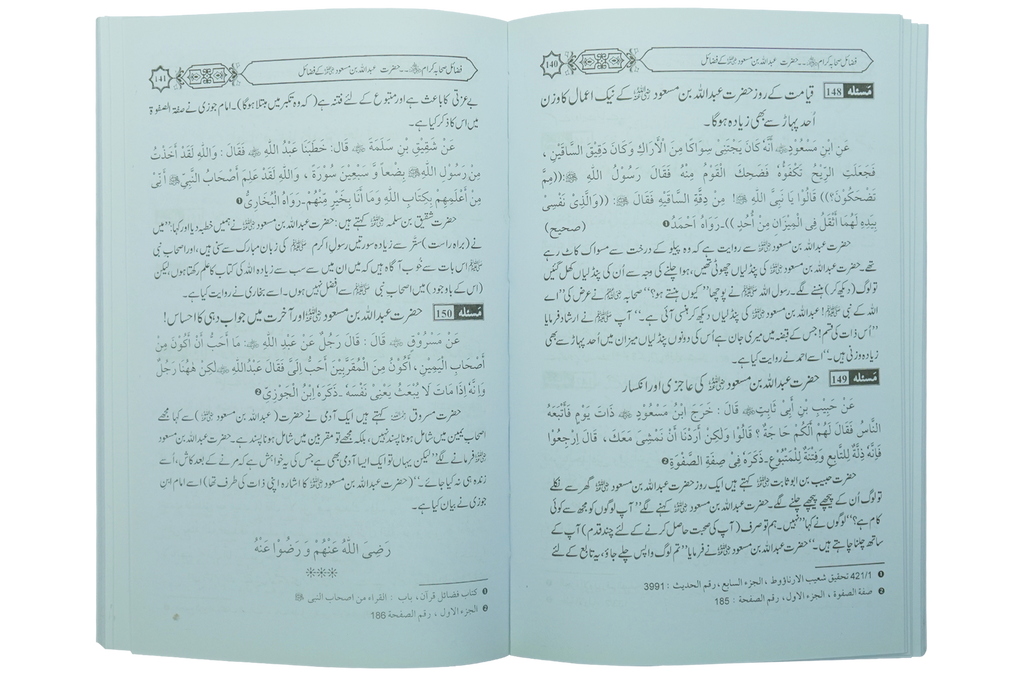 فضائل صحابہ کرام ﷢۔۔۔ حضرت عبداللہ بن مسعود ﷜ کے فضائل
140
مَسئله 148 قیامت کے روز حضرت عبداللہ بن مسعود ﷜ کے نیک اعمال کا وزن
اُحد پہاڑ سے بھی زیادہ ہوگا۔
عَنِ ابْنِ مَسْعُودٍ ﷜ أَنَّهُ كَانَ يَجْتَنِي سِوَاكًا مِنَ الْأَرَاكِ وَكَانَ دَقِيْقَ السَّاقَيْنِ ،
فَجَعَلَتِ الرِّيْحُ تَكْفَؤُهُ فَضَحِكَ الْقَوْمُ مِنْهُ فَقَالَ رَسُوْلُ اللهِ ﷺ :((مِمَّ
تَضْحَكُوْنَ؟)) قَالُوْا يَا نَبِيَّ اللهِ ﷺ! مِنْ دِقَّةِ السَّاقَيْهِ فَقَالَ ﷺ : ((وَالَّذِىْ نَفْسِىْ
بِيَدِهِ لَهُمَا أَثْقَلُ فِى الْمِيْزَانِ مِنْ أُحُدٍ ))۔رَوَاهُ اَحْمَدُ ❶ (صحيح)
حضرت عبداللہ بن مسعود ﷜ سے روایت ہے کہ وہ پیلو کے درخت سے مسواک کاٹ رہے
تھے۔ حضرت عبداللہ بن مسعود ﷜ کی پنڈلیاں چھوٹی تھیں، ہوا چلنے کی وجہ سے اُن کی پنڈلیاں کھل گئیں
تو لوگ (دیکھ کر) ہنسنے لگے۔ رسول اللہ ﷺ نے پوچھا ’’کیوں ہنستے ہو؟‘‘ صحابہ ﷢ نے عرض کی ’’اے
اللہ کے نبی ﷺ! عبداللہ بن مسعود ﷜ کی پنڈلیاں دیکھ کر ہنسی آئی ہے۔‘‘ آپ ﷺ نے ارشاد فرمایا
’’اُس ذات کی قسم! جس کے قبضہ میں میری جان ہے اُس کی دونوں پنڈلیاں میزان میں اُحد پہاڑ سے بھی
زیادہ وزنی ہیں۔‘‘ اسے احمد نے روایت کیا ہے۔
مَسئله 149 حضرت عبداللہ بن مسعود ﷜ کی عاجزی اور انکسار
عَنْ حَبِيْبِ بْنِ أَبِىْ ثَابِتٍ ﷫ قَالَ : خَرَجَ ابْنُ مَسْعُوْدٍ ﷜ ذَاتَ يَوْمٍ فَأَتْبَعَهُ
النَّاسُ فَقَالَ لَهُمْ أَلَكُمْ حَاجَةٌ ؟ قَالُوْا وَلٰكِنْ أَرَدْنَا أَنْ نَمْشِىَ مَعَكَ ، قَالَ اِرْجِعُوْا
فَإِنَّهُ ذِلَّةٌ لِلتَّابِعِ وَفِتْنَةٌ لِلْمَتْبُوْعِ۔ذَكَرَهُ فِىْ صِفَةِ الصَّفْوَةِ ❷
حضرت حبیب بن ابو ثابت ﷫ کہتے ہیں ایک روز حضرت عبداللہ بن مسعود ﷜ گھر سے نکلے
تو لوگ اُن کے پیچھے پیچھے چلنے لگے۔ حضرت عبداللہ بن مسعود ﷜ کہنے لگے ’’آپ لوگوں کو مجھ سے کوئی
کام ہے؟‘‘ لوگوں نے کہا ’’نہیں۔ ہم تو صرف (آپ کی صحبت حاصل کرنے کے لئے چند قدم) آپ کے
ساتھ چلنا چاہتے ہیں۔‘‘ حضرت عبداللہ بن مسعود ﷜ نے فرمایا ’’تم لوگ واپس چلے جاؤ، یہ تابع کے لئے
❶ 421/1 تحقیق شعیب الارناؤوط ، الجزء السابع ، رقم الحدیث : 3991
❷ صفة الصفوة ، الجزء الاول، رقم الصفحة : 185
فضائل صحابہ کرام ﷢۔۔۔ حضرت عبداللہ بن مسعود ﷜ کے فضائل
141
بے عزتی کا باعث ہے اور متبوع کے لئے فتنہ ہے (کہ وہ تکبر میں مبتلا ہوگا)۔ امام جوزی نے صفۃ الصفوۃ
میں اس کا ذکر کیا ہے۔
عَنْ شَقِيْقِ بْنِ سَلَمَةَ ﷫ قَالَ: خَطَبَنَا عَبْدُ اللهِ ﷜ فَقَالَ : وَاللهِ لَقَدْ أَخَذْتُ
مِنْ رَسُوْلِ اللهِ ﷺ بِضْعاً وَّ سَبْعِيْنَ سُوْرَةً ، وَاللهِ لَقَدْ عَلِمَ أَصْحَابُ النَّبِيِّ ﷺ أَنِّىْ
مِنْ أَعْلَمِهِمْ بِكِتَابِ اللهِ وَمَا أَنَا بِخَيْرٍ مِّنْهُمْ۔رَوَاهُ الْبُخَارِىُّ ❶
حضرت شقیق بن سلمہ ﷫ کہتے ہیں: حضرت عبداللہ بن مسعود ﷜ نے ہمیں خطبہ دیا اور کہا: ’’میں
نے (براہ راست) ستر سے زیادہ سورتیں رسول اکرم ﷺ کی زبان مبارک سے سنی ہیں، اور اصحاب نبی
ﷺ اس بات سے خوب آگاہ ہیں کہ میں ان میں سے سب سے زیادہ اللہ کی کتاب کا علم رکھتا ہوں، لیکن
(اس کے باوجود) میں اصحاب نبی ﷺ سے افضل نہیں ہوں۔ اسے بخاری نے روایت کیا ہے۔
مَسئله 150 حضرت عبداللہ بن مسعود ﷜ اور آخرت میں جواب دہی کا احساس!
عَنْ مَسْرُوْقٍ ﷫ قَالَ : قَالَ رَجُلٌ عَنْ عَبْدِ اللهِ ﷜: مَا أُحِبُّ أَنْ أَكُوْنَ مِنْ
أَصْحَابِ الْيَمِيْنِ، أَكُوْنُ مِنَ الْمُقَرَّبِيْنَ أَحَبُّ إِلَىَّ فَقَالَ عَبْدُاللهِ ﷜ لٰكِنْ هٰهُنَا رَجُلٌ
وَإِنَّهُ إِذَا مَاتَ لَا يُبْعَثُ يَعْنِىْ نَفْسَهُ ۔ذَكَرَهُ اِبْنُ الْجَوْزِىِّ ❷
حضرت مسروق ﷫ کہتے ہیں ایک آدمی نے حضرت (عبداللہ بن مسعود ﷜) سے کہا مجھے
اصحاب یمین میں شامل ہونا پسند نہیں، بلکہ مجھے تو مقربین میں شامل ہونا پسند ہے۔ حضرت عبداللہ بن مسعود
﷜ فرمانے لگے ’’لیکن یہاں تو ایک ایسا آدمی بھی ہے جس کی یہ خواہش ہے کہ مرنے کے بعد کاش، اُسے
زندہ ہی نہ کیا جائے۔‘‘ (حضرت عبداللہ بن مسعود ﷜ کا اشارہ اپنی ذات کی طرف تھا) اسے امام ابن
جوزی نے بیان کیا ہے۔
رَضِىَ اللهُ عَنْهُمْ وَ رَضُوْا عَنْهُ
❶ كتاب فضائل قرآن، باب : القراء من اصحاب النبى ﷺ
❷ الجزء الاول ، رقم الصفحة 186